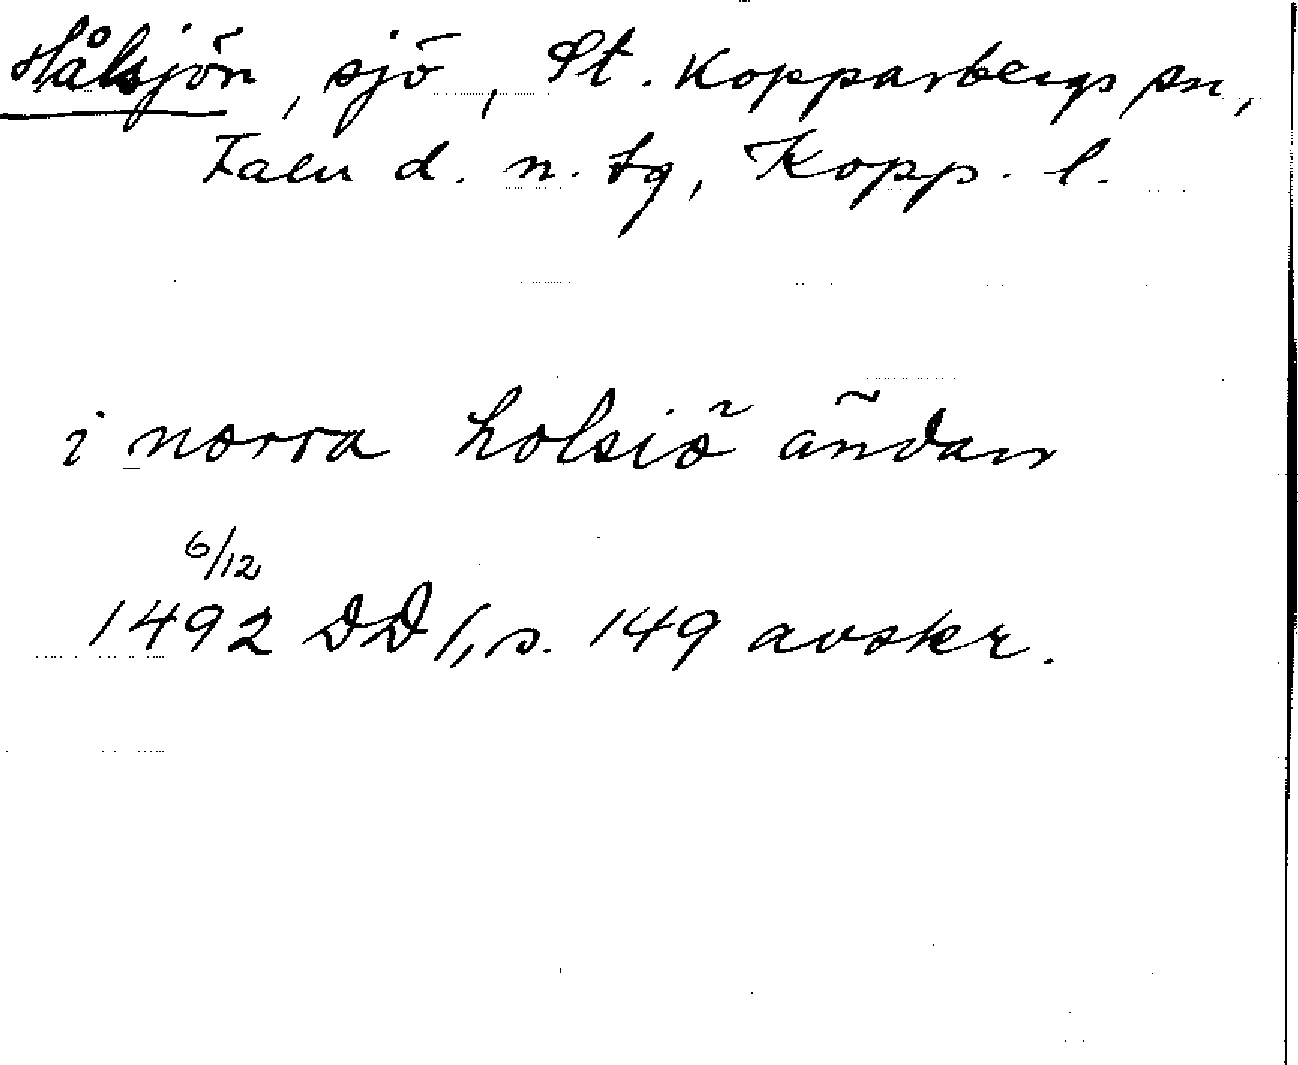 Hålsjön, sjö, St. Kopparbergs sn,
Falu d. n. tg, Kopp. l.
i norra holsiö ändan
6/12
1492 DD 1, s. 149 avskr.